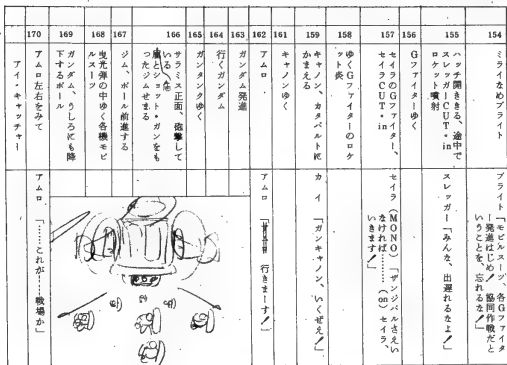 154
ミライなめブライト
ブライト「モビルスーツ、各Gファイター発進はじめ！協同作戦だということを、忘れるな！」
155
ハッチ開ききる、途中で
スレッガーCUT・in
ロケット噴射
スレッガー「みんな、出遅れるなよ！」
156
Gファイターゆく
157
セイラのGファイター、
セイラCUT・in
セイラ（MONO）「ザンジバルさえいなければ………（on）セイラ、いきます！」
158
ゆくGファイターのロケ
ット炎
159
キャノン、カタパルトに
かまえる
カイ「ガンキャノン、いくぜえ！」
161
キャノンゆく
162
アムロ
アムロ「 行きまーす！」
163
ガンダム発進
164
行くガンダム
165
ガンタンクゆく
166
サラミス正面、砲撃して
いる
とショット・ガンをも
ったジムせまる
167
ジム、ボール前進する
168
曳光弾の中ゆく各機モビ
ルスーツ
169
ガンダム、うしろにも降
下するボール
170
アムロ左右をみて
アムロ「……これが……戦場か」
アイ・キャッチャー